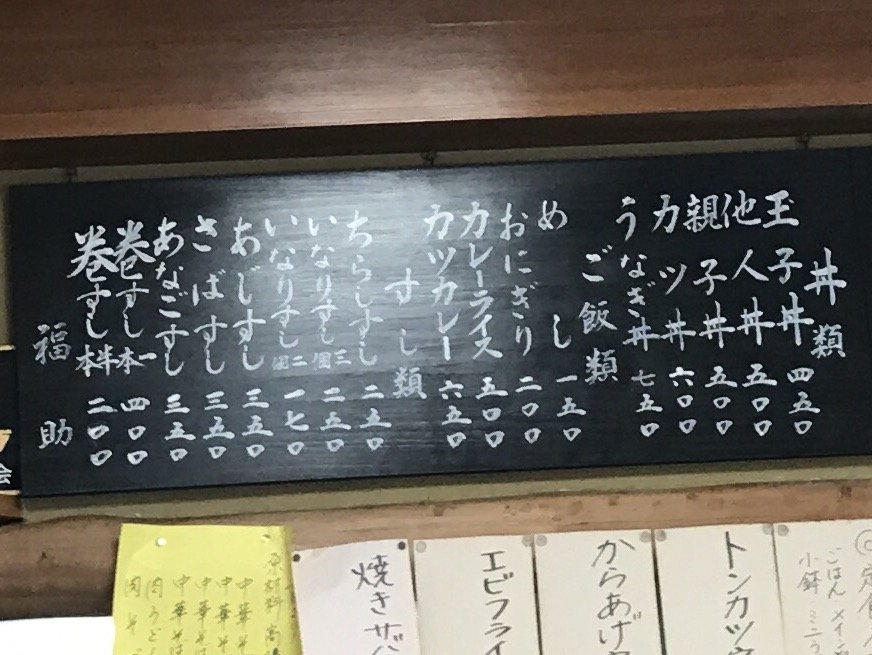 丼類
玉子丼 四五〇
他人丼 五〇〇
親子丼 五〇〇
カツ丼 六〇〇
うなぎ丼 七五〇
ご飯類
めし 一五〇
おにぎり 二〇〇
カレーライス 五〇〇
カツカレー 六五〇
すし類
ちらしすし 二五〇
いなりすし 三個 二五〇
いなりすし 二個 一七〇
あじすし 三五〇
さばすし 三五〇
あなごすし 三五〇
巻すし 一本 四〇〇
巻すし 半本 二〇〇
福助
会
ごはん
小鉢
トンカツ
からあげ
エビフライ
焼きザバ
原材料
中華そ
中華そ
中華そば
肉うどん
肉そ